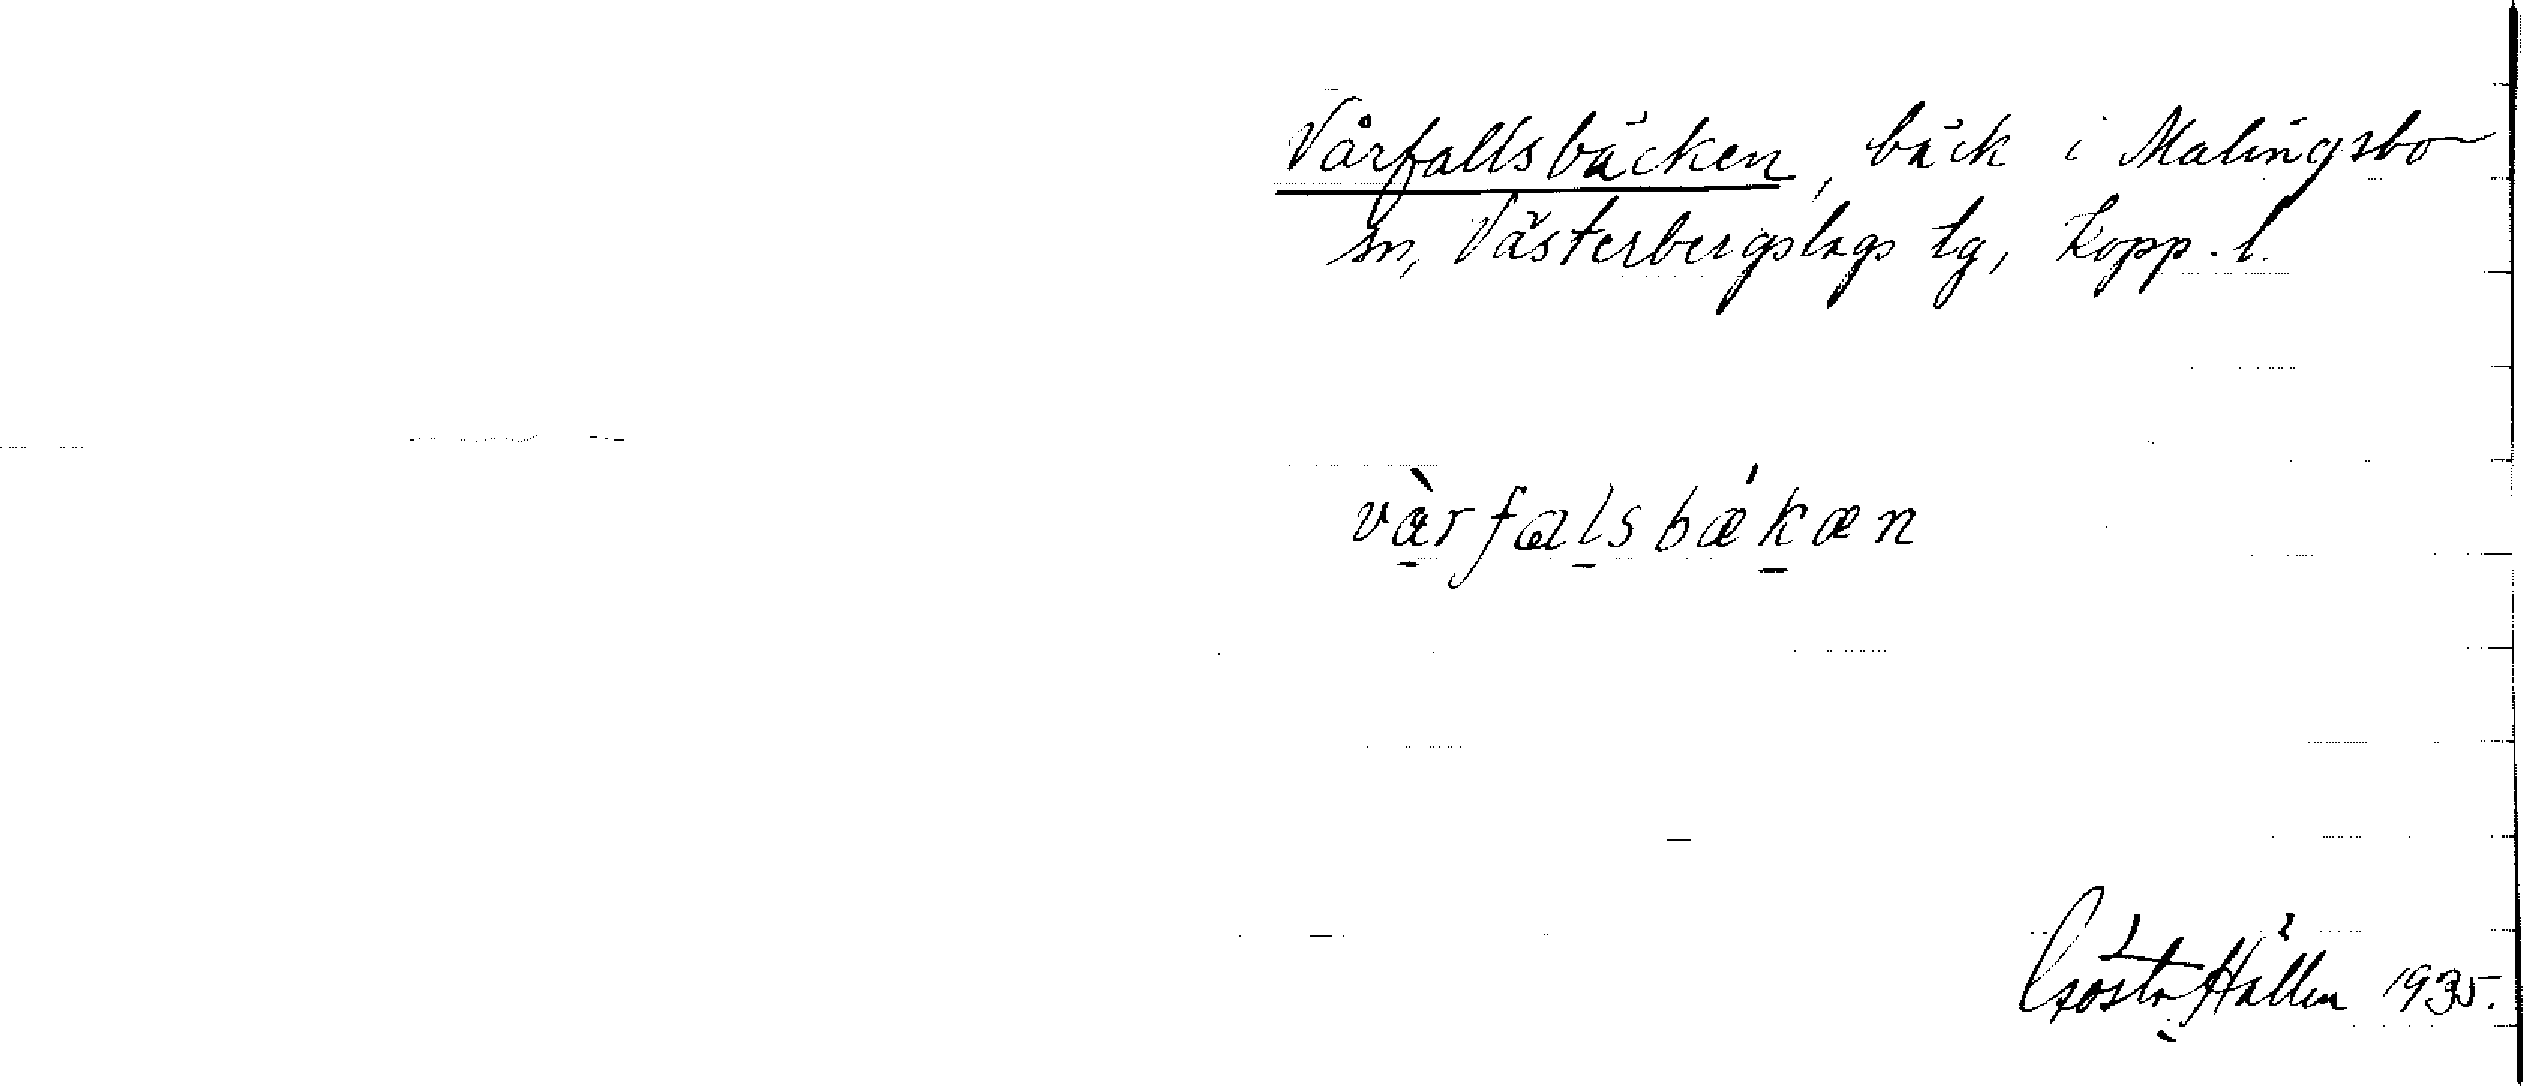 Vårfallsbäcken, bäck i Malingsbo
sn, Västerbergslags tg, Kopp. l.
và̱rfaḻsbǽḵæn
Gösta Hällen 1935.